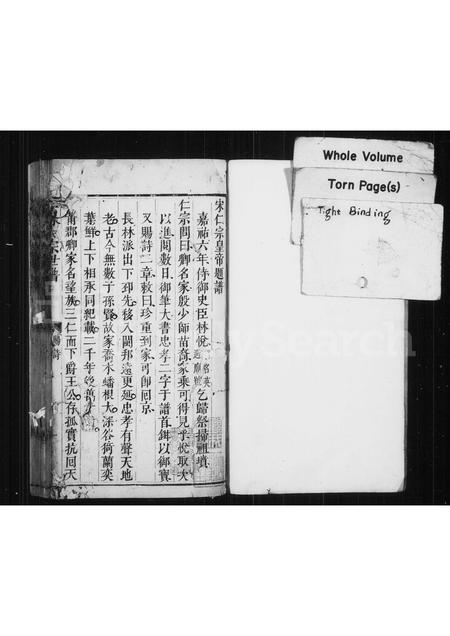 宋仁宗皇帝題譜
嘉祐六年侍御史臣林悅乞歸祭掃祖墳
仁宗問曰卿名家殷少師苗裔家乘可得見乎悅取次
以進閱數日御筆大書忠孝二字于譜首鉗以御寶
又賜詩二章敕曰珍重到家可即回京
長林派出下邳先移入閩邦遠更延忠孝有聲天地
老古今無數子孫賢故家喬木蟠根大深谷荷蘭奕
葉鮮上下相承同紀載二千年
莆郡卿家名望族三仁而下爵王公存孤實抗回天
Whole Volume
Torn Page(s)
Tight Binding